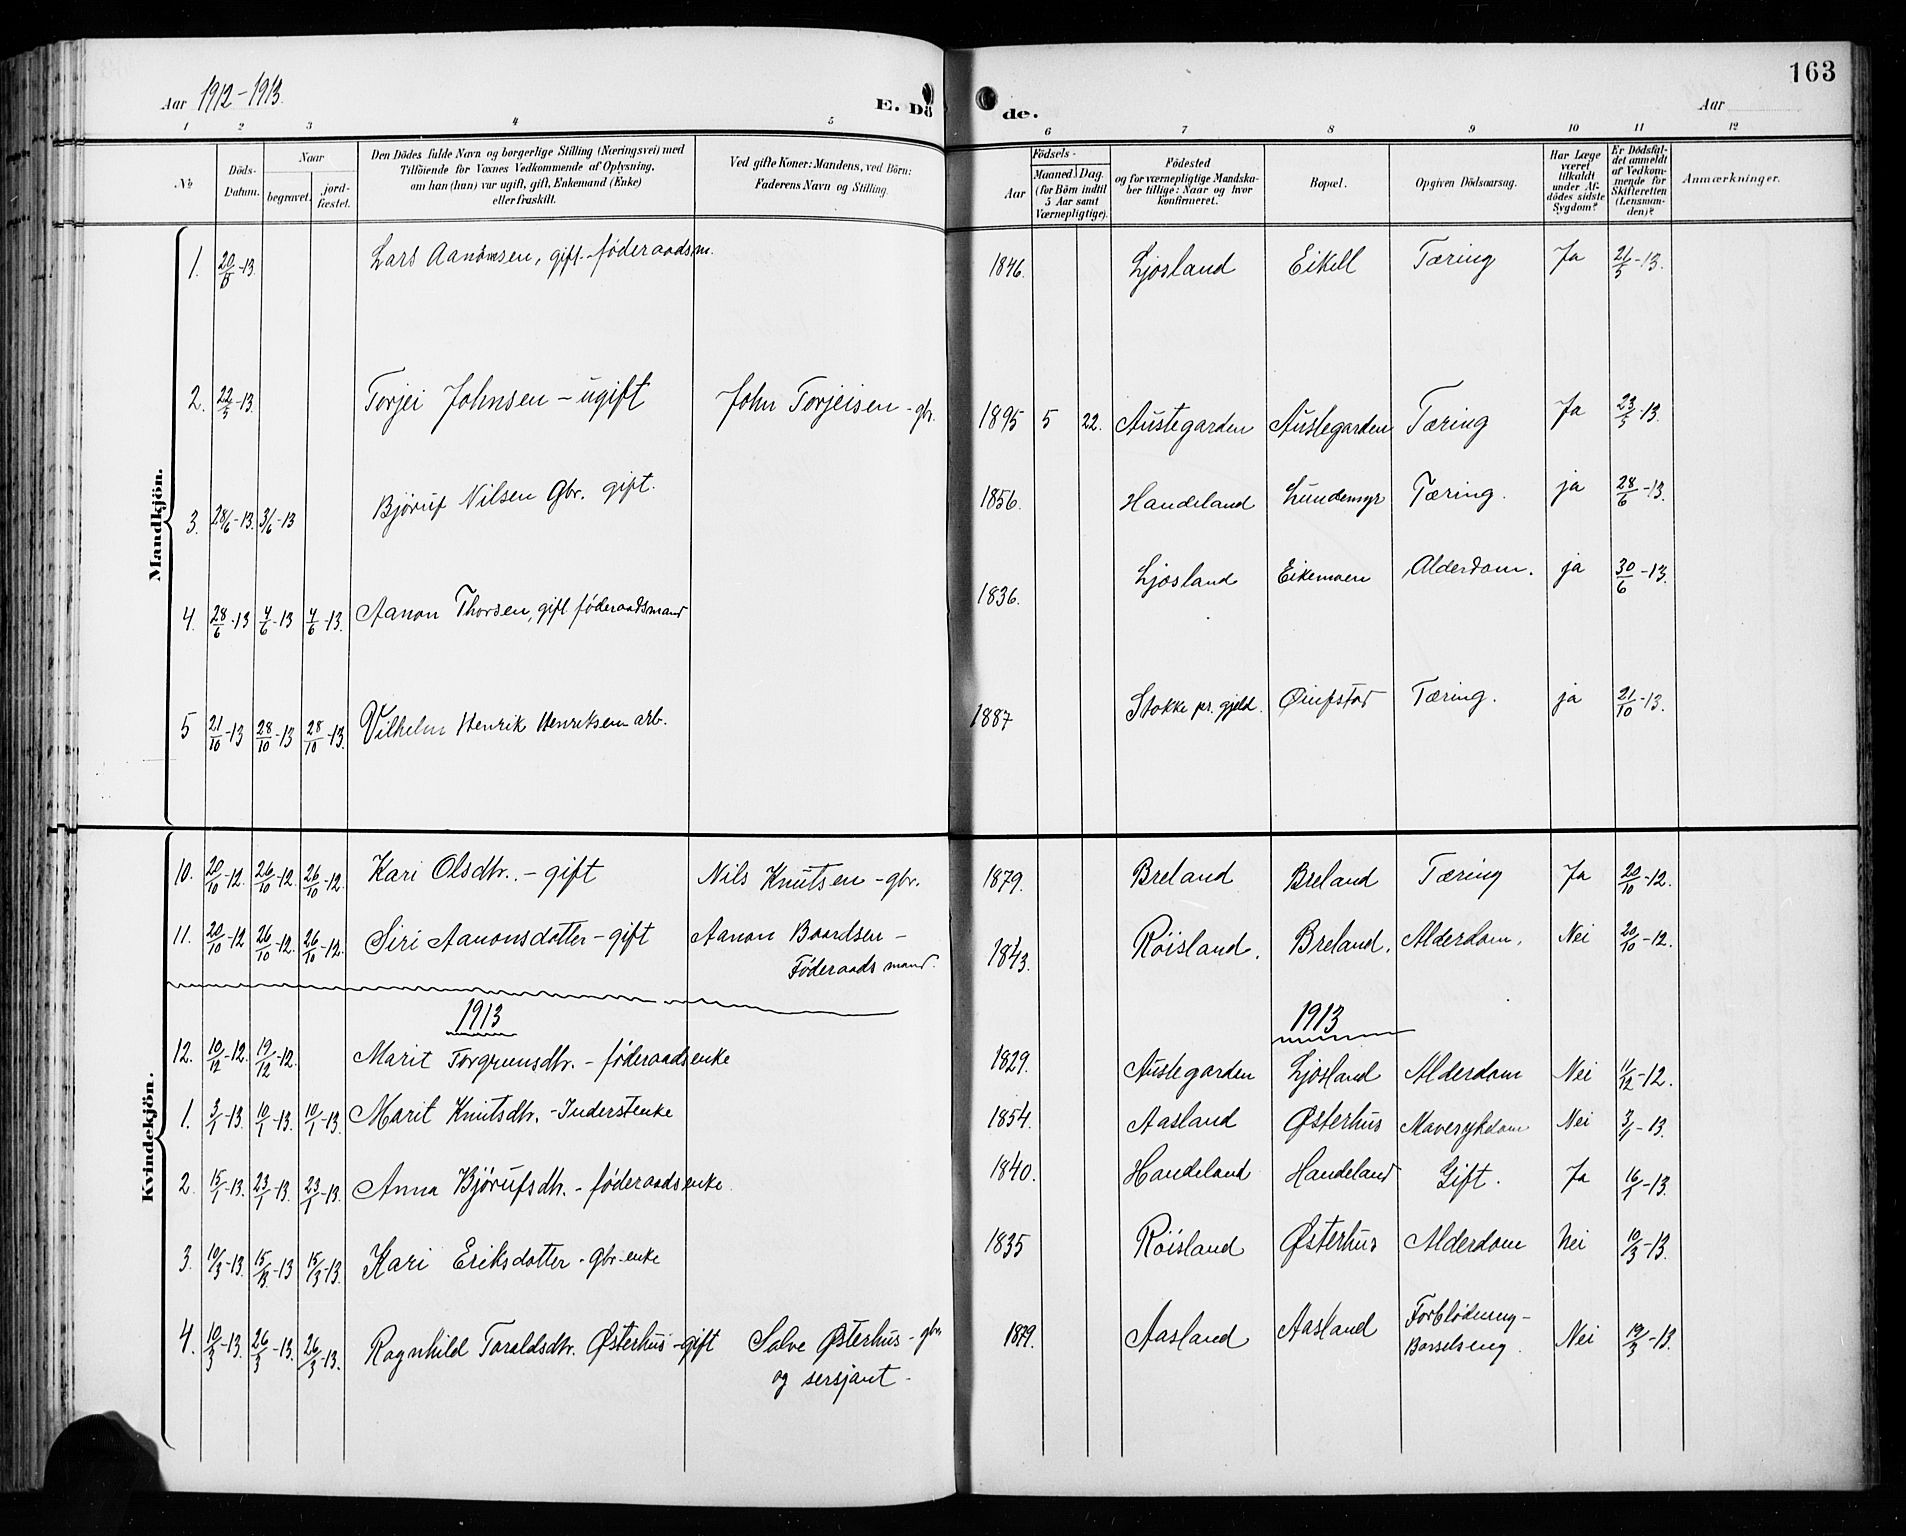 163
Aar 1912-1913.
E. Dö de.
Aar
1 2 3 4 5 6 7 8 9 10 11 12
No
Döds-Datum.
Naar
begravet.
jord-fæstet.
Den Dödes fulde Navn og borgerlige Stilling (Næringsvei) med
Tilföiende for Voxnes Vedkommende af Oplysning,
om han (hun) var ugift, gift, Enkemand (Enke)
eller fraskilt.
Ved gifte Koner: Mandens, ved Börn:
Faderens Navn og Stilling.
Födsels-
Aar
Maaned. Dag.
(for Börn indtil
5 Aar samt
Værnepligtige).
Födested
og for værnepligtige Mandska-
ber tillige: Naar og hvor
konfirmeret.
Bopæl.
Opgiven Dödsaarsag.
Har Læge
været
tilkaldt
under Af-
dödes sidste
Sygdom?
Er Dödsfal-
det anmeldt
af Vedkom-
mende for
Skifteretten
(Lensman-
den)?
Anmærkninger.
Mandkjön.
1. 20/5-13. Lars Aanonsen, gift - føderaadsm. 1846. Ljosland Eikell Tæring Ja 21/5-13.
2. 22/5-13. Torjei Johnsen - ugift John Torjeisen - gbr. 1895 5 22. Austegarden Austegarden Tæring Ja 23/5-13.
3. 28/6-13. 3/6-13 Bjøruf Nilsen Gbr. gift. 1856. Handeland Lundemyr Tæring. ja 28/6-13.
4. 28/6-13 4/6-13 4/6-13. Aanon Thorsen, gift føderaadsmand 1836. Ljosland Eikemoen Alderdom. ja 30/6-13.
5 21/10-13 28/10-13 28/10-13. Vilhelm Henrik Henriksen arb. 1887 Stokke pr. gjeld. Tæring. ja 21/10-13.
Kvindekjön.
10. 20/10-12. 26/10-12. 26/10-12. Kari Olsdtr. - gift Nils Knutsen - gbr. 1879. Breland Breland Tæring Ja 20/10-12.
11. 20/10-12 26/10-12. 26/10-12. Siri Aanonsdatter - gift Aanon Baardsen -
Føderaads mand. 1843. Røisland. Breland. Alderdom. Nei 20/10-12.
1913 1913
12. 10/12-12. 19/12-12. Marit Torgrimsdtr. - føderaadsenke 1829. Austegarden Ljosland Alderdom Nei 11/12-12.
1. 3/1-13. 10/1-13. 10/1-13. Marit Knutsdtr. - Inderstenke 1854. Aasland Østerhus Mavesykdom Nei 3/1-13.
2. 15/1-13. 23/1-13. 23/1-13. Anna Bjørufsdtr. - føderaadsenke. 1840. Handeland Handeland Gift. Ja 16/1-13.
3. 10/3-13. 15/3-13 15/3-13. Kari Eriksdatter - Gbr-enke 1835 Røisland Østerhus Alderdom Nei 10/3-13.
4. 19/3-13. 26/3-13. 26/3-13. Ragnhild Taraldsdtr. Østerhus - gift Salve Østerhus - gbr.
og sersjant - 1879. Aasland Aasland Forblødning -
Barselseng. Nei 19/3-13.